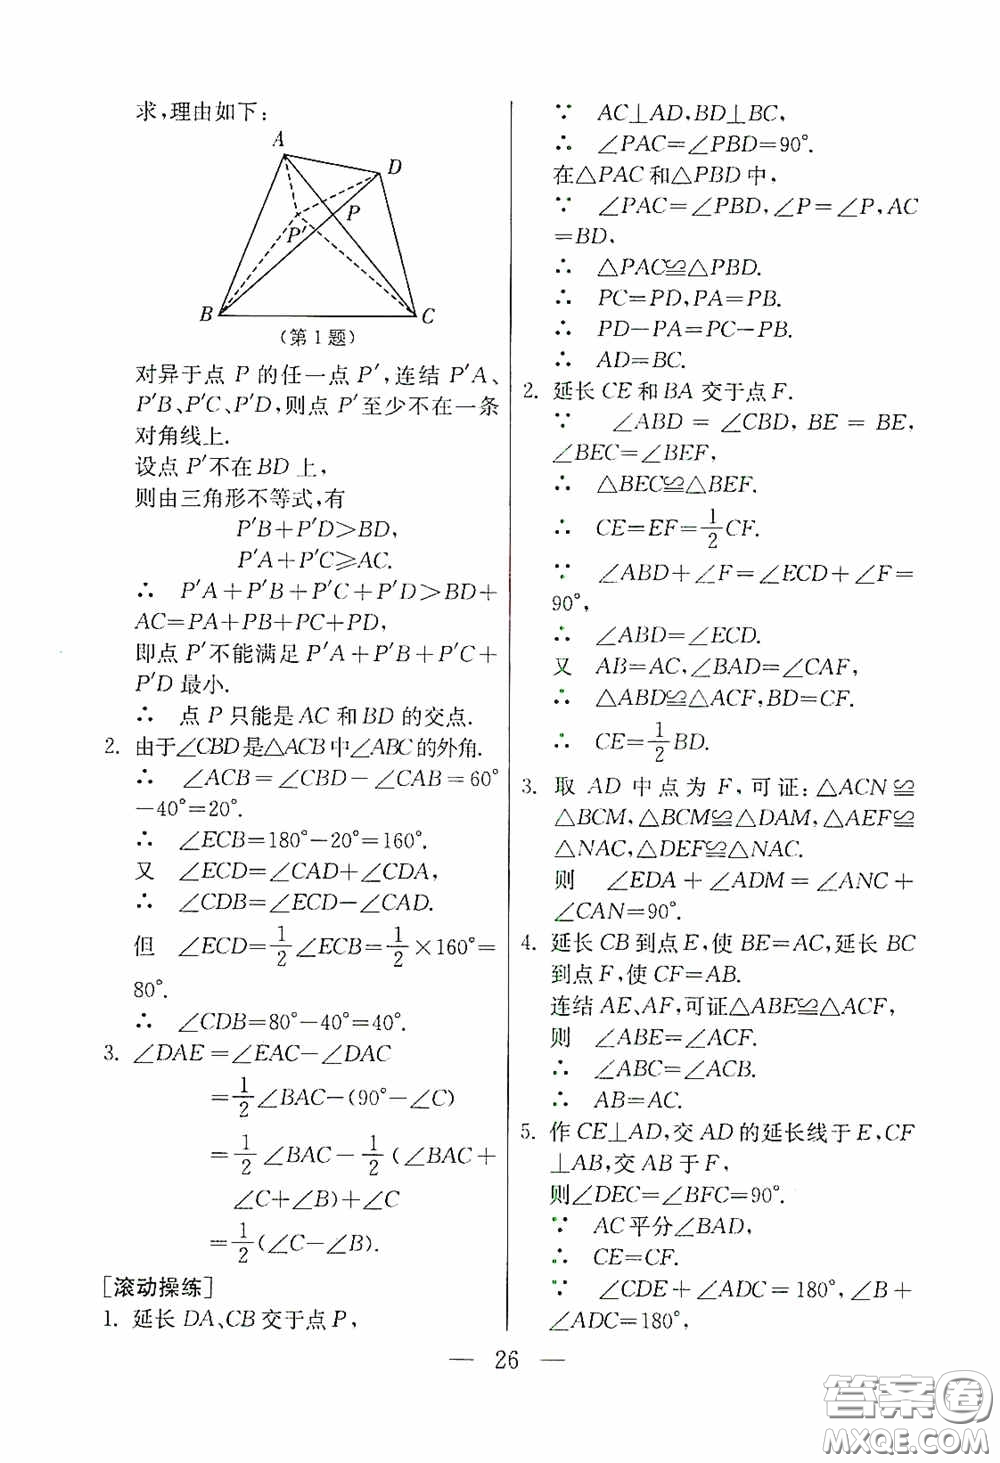 求,理由如下:
A
D
P
P′
B
C
(第1题)
对异于点 P 的任一点 P′,连结 P′A、
P′B、P′C、P′D,则点 P′至少不在一条
对角线上.
设点 P′不在 BD 上,
则由三角形不等式,有
P′B+P′D>BD,
P′A+P′C⩾AC.
∴ P′A+P′B+P′C+P′D>BD+
AC=PA+PB+PC+PD,
即点 P′不能满足 P′A+P′B+P′C+
P′D 最小.
∴ 点 P 只能是 AC 和 BD 的交点.
2. 由于∠CBD是△ACB中∠ABC的外角.
∴ ∠ACB=∠CBD-∠CAB=60°
-40°=20°.
∴ ∠ECB=180°-20°=160°.
又 ∠ECD=∠CAD+∠CDA,
∴ ∠CDB=∠ECD-∠CAD.
但 ∠ECD=1/2∠ECB=1/2×160°=
80°.
∴ ∠CDB=80°-40°=40°.
3. ∠DAE=∠EAC-∠DAC
=1/2∠BAC-(90°-∠C)
=1/2∠BAC-1/2(∠BAC+
∠C+∠B)+∠C
=1/2(∠C-∠B).
[滚动操练]
1. 延长 DA、CB 交于点 P,
∵ AC⊥AD,BD⊥BC,
∴ ∠PAC=∠PBD=90°.
在△PAC 和△PBD 中,
∵ ∠PAC=∠PBD,∠P=∠P,AC
=BD,
∴ △PAC≌△PBD.
∴ PC=PD,PA=PB.
∴ PD-PA=PC-PB.
∴ AD=BC.
2. 延长 CE 和 BA 交于点 F.
∵ ∠ABD=∠CBD,BE=BE,
∠BEC=∠BEF,
∴ △BEC≌△BEF.
∴ CE=EF=1/2CF.
∵ ∠ABD+∠F=∠ECD+∠F=
90°,
∴ ∠ABD=∠ECD.
又 AB=AC,∠BAD=∠CAF,
∴ △ABD≌△ACF,BD=CF.
∴ CE=1/2BD.
3. 取 AD 中点为 F,可证:△ACN≌
△BCM,△BCM≌△DAM,△AEF≌
△NAC,△DEF≌△NAC.
则 ∠EDA+∠ADM=∠ANC+
∠CAN=90°.
4. 延长 CB 到点 E,使 BE=AC,延长 BC
到点 F,使 CF=AB.
连结 AE、AF,可证△ABE≌△ACF,
则 ∠ABE=∠ACF.
∴ ∠ABC=∠ACB.
∴ AB=AC.
5. 作 CE⊥AD,交 AD 的延长线于 E,CF
⊥AB,交 AB 于 F,
则∠DEC=∠BFC=90°.
∵ AC 平分∠BAD,
∴ CE=CF.
∵ ∠CDE+∠ADC=180°,∠B+
∠ADC=180°,
— 26 —
答案卷
MXQE.COM